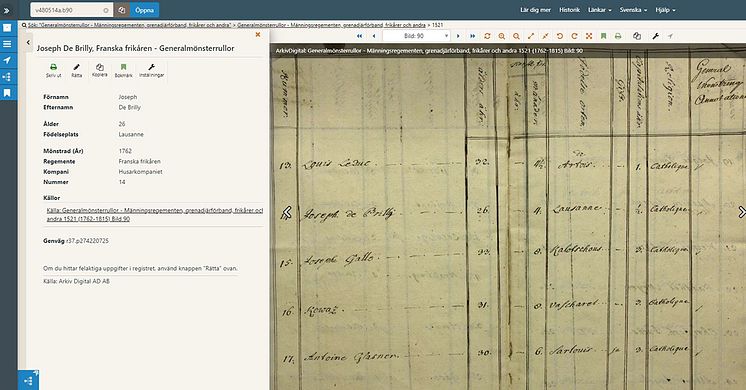 v480514a.b90
Öppna
Lär dig mer Historik Länkar Svenska Hjälp
Sök: "Generalmönsterrullor - Männingsregementen, grenadjärförband, frikårer och andra" > Generalmönsterrullor - Männingsregementen, grenadjärförband, frikårer och andra > 1521
Joseph De Brilly, Franska frikåren - Generalmönsterrullor
Skriv ut Rätta Kopiera Bokmärk Inställningar
Förnamn Joseph
Efternamn De Brilly
Ålder 26
Födelseplats Lausanne
Mönstrad (År) 1762
Regemente Franska frikåren
Kompani Husarkompaniet
Nummer 14
Källor
Källa: Generalmönsterrullor - Männingsregementen, grenadjärförband, frikårer och
andra 1521 (1762-1815) Bild 90
Genväg r37.p274220725
Om du hittar felaktiga uppgifter i registret, använd knappen "Rätta" ovan.
Källa: Arkiv Digital AD AB
Bild: 90
ArkivDigital: Generalmönsterrullor - Männingsregementen, grenadjärförband, frikårer och andra 1521 (1762-1815) Bild: 90
Nummer. ålder, åhr. åhr. månader. Födelse orten. Gift. Religion. General
13. Louis Leduc 32. 4½ Artois 1. Catholique
Joseph de Brilly 26. 4. Lausanne ½. Catholique
15. Joseph Gallo 33. 8. 3. Catholique
16. Kowatz 31. 8. 3. Catholique
17. Antoine Glasner 30. 6. Sarlouis ja 3. Catholique